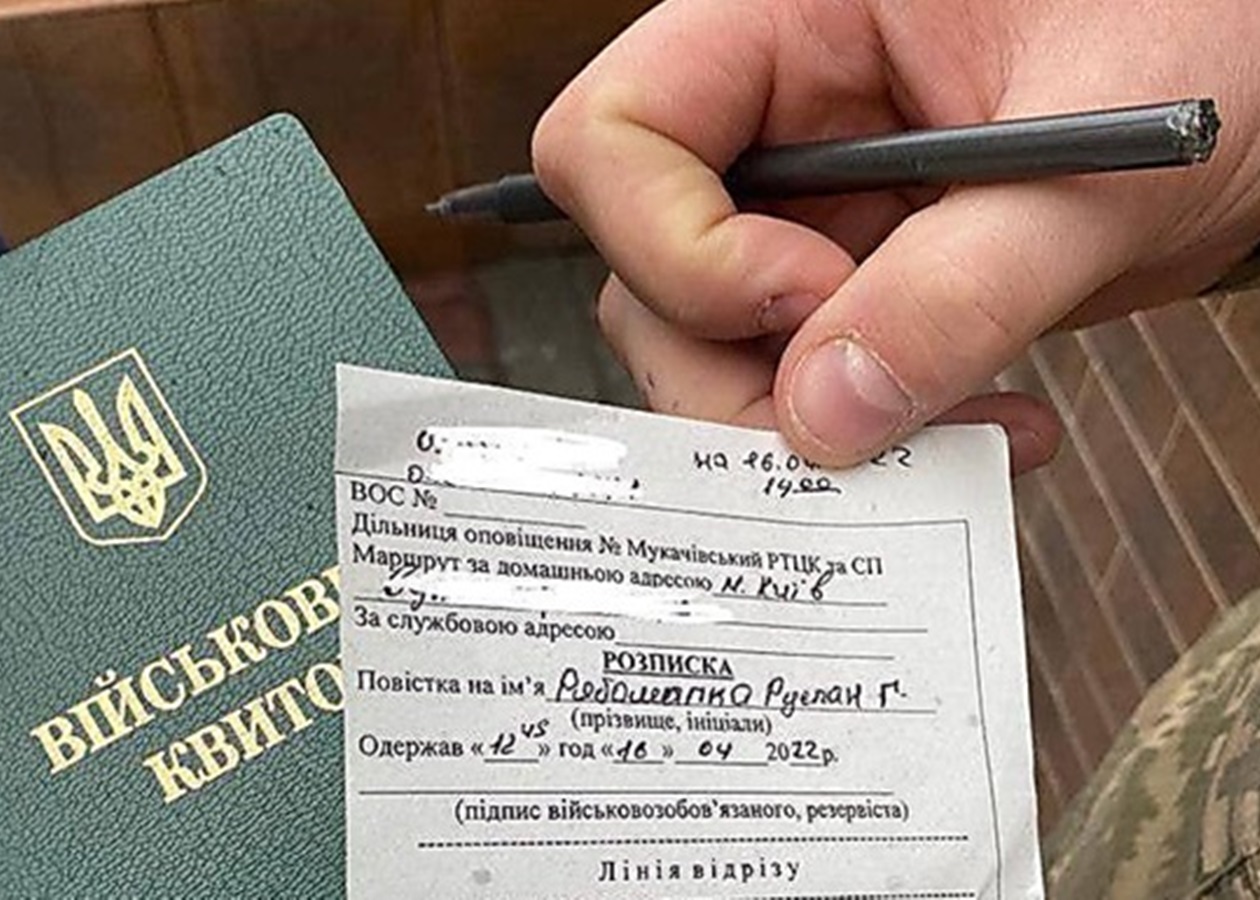 ВІЙСЬКОВ
КВИТО
на 16.0 22
14 00
ВОС №
Дільниця оповіщення № Мукачівський РТЦК та СП
Маршрут за домашньою адресою м. Київ
За службовою адресою
РОЗПИСКА
Повістка на ім'я Рябошапка Руслан Г.
(прізвище, ініціали)
Одержав «12 45» год «16» 04 2022 р.
(підпис військовозобов'язаного, резервіста)
Лінія відрізу